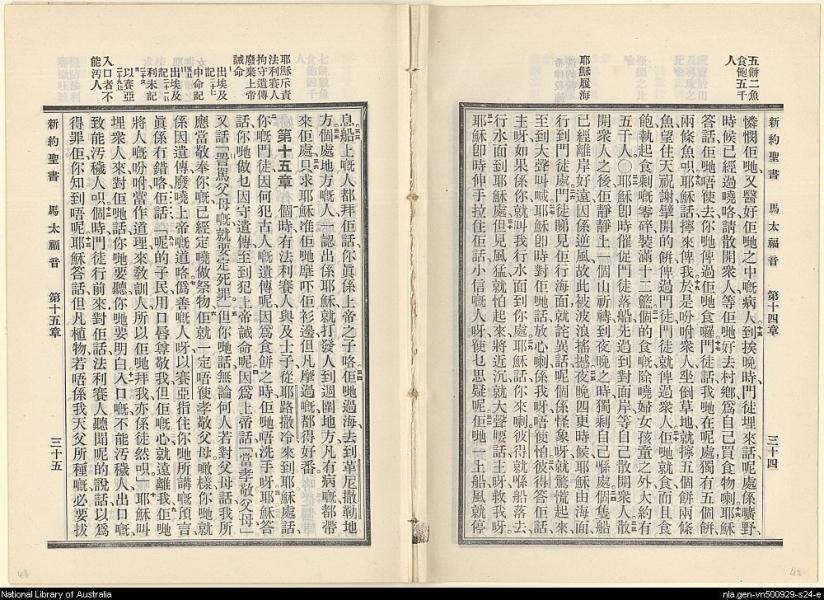 五餅二魚
食飽五千
人
耶穌履海
新約聖書 馬太福音 第十四章 三十四
憐憫佢哋又醫好佢哋之中嘅病人到挨晚時門徒埋來話呢處係嚝野
時候已經過曉咯請散開衆人等佢哋好去村鄉爲自己買食物喇耶穌
答話佢哋唔使去你哋俾過佢哋食囉門徒話我哋在呢處獨有五個餅
兩條魚呮耶穌話擰來俾我於是吩咐衆人坐倒草地就擰五個餅兩條
魚望住天祝謝擘開的餅俾過門徒門徒就俾過衆人佢哋就食而且食
飽執起食剩嘅零碎裝滿十二籃個的食嘅除曉婦女孩童之外大約有
五千人〇耶穌卽時催促門徒落船先過到對面岸等自己散開衆人散
開衆人之後佢靜靜上一個山祈禱到夜晚之時獨剩自己喺處個隻船
已經離岸好遠因係逆風故此被波浪搖撼夜晚四更時候耶穌由海面
行到門徒處門徒睇見佢行海面就詫異話呢個係怪象呀就驚慌起來
至到大聲叫喊耶穌卽時對佢哋話放心喇係我呀唔使怕彼得答佢話
主呀如果係你就叫我行水面到你處耶穌話你來喇彼得就喺船落去
行水面到耶穌處但見風猛就怕起來將近沉就大聲嗌話主呀救我呀
耶穌卽時伸手拉住佢話小信嘅人呀使乜思疑呢佢哋一上船風就停
耶穌斥責
法利賽人
拘守遺傳
廢棄上帝
誡命
出埃及
記
申命記
出埃及
記
利未記
以賽亞
入口者不
能汚人
息船上嘅人都拜佢話你眞係上帝之子咯佢哋過海去到革尼撒勒地
方個處地方嘅人一認出係耶穌就打發人到週圍地方凡有病嘅都帶
來佢處只求耶穌准佢哋摩吓佢衫邊但凡摩過嘅都得好番
第十五章 個時有法利賽人與及士子從耶路撒冷來到耶穌處話
你嘅門徒因何犯古人嘅遺傳呢因爲食餅之時佢哋唔洗手呀耶穌答
話你哋做乜因守遺傳至到犯上帝誡命呢因爲上帝話當孝敬父母
又話詈罵父母嘅就要定死罪但你哋話無論何人若對父母話我所
應當敬奉你嘅已經定曉做祭物佢就一定唔使孝敬父母噉樣你哋就
係因遺傳廢曉上帝嘅道咯僞爲善嘅人呀以賽亞指住你哋所講嘅預言
眞係冇錯咯佢話呢的子民用口唇尊敬我但佢嘅心就遠離我佢哋
將人嘅吩咐當作道理來敎訓人所以佢哋拜我亦係徒然呮耶穌叫
埋衆人來對佢哋話你哋要聽你哋要明白入口嘅不能汚穢人出口嘅
致能汚穢人呮個時門徒行前來對佢話法利賽人聽聞呢的說話以爲
得罪佢你知到唔呢耶穌答話但凡植物若唔係我天父所種嘅必要拔
新約聖書 馬太福音 第十五章 三十五
43
42
National Library of Australia
nla.gen-vn500929-s24-e